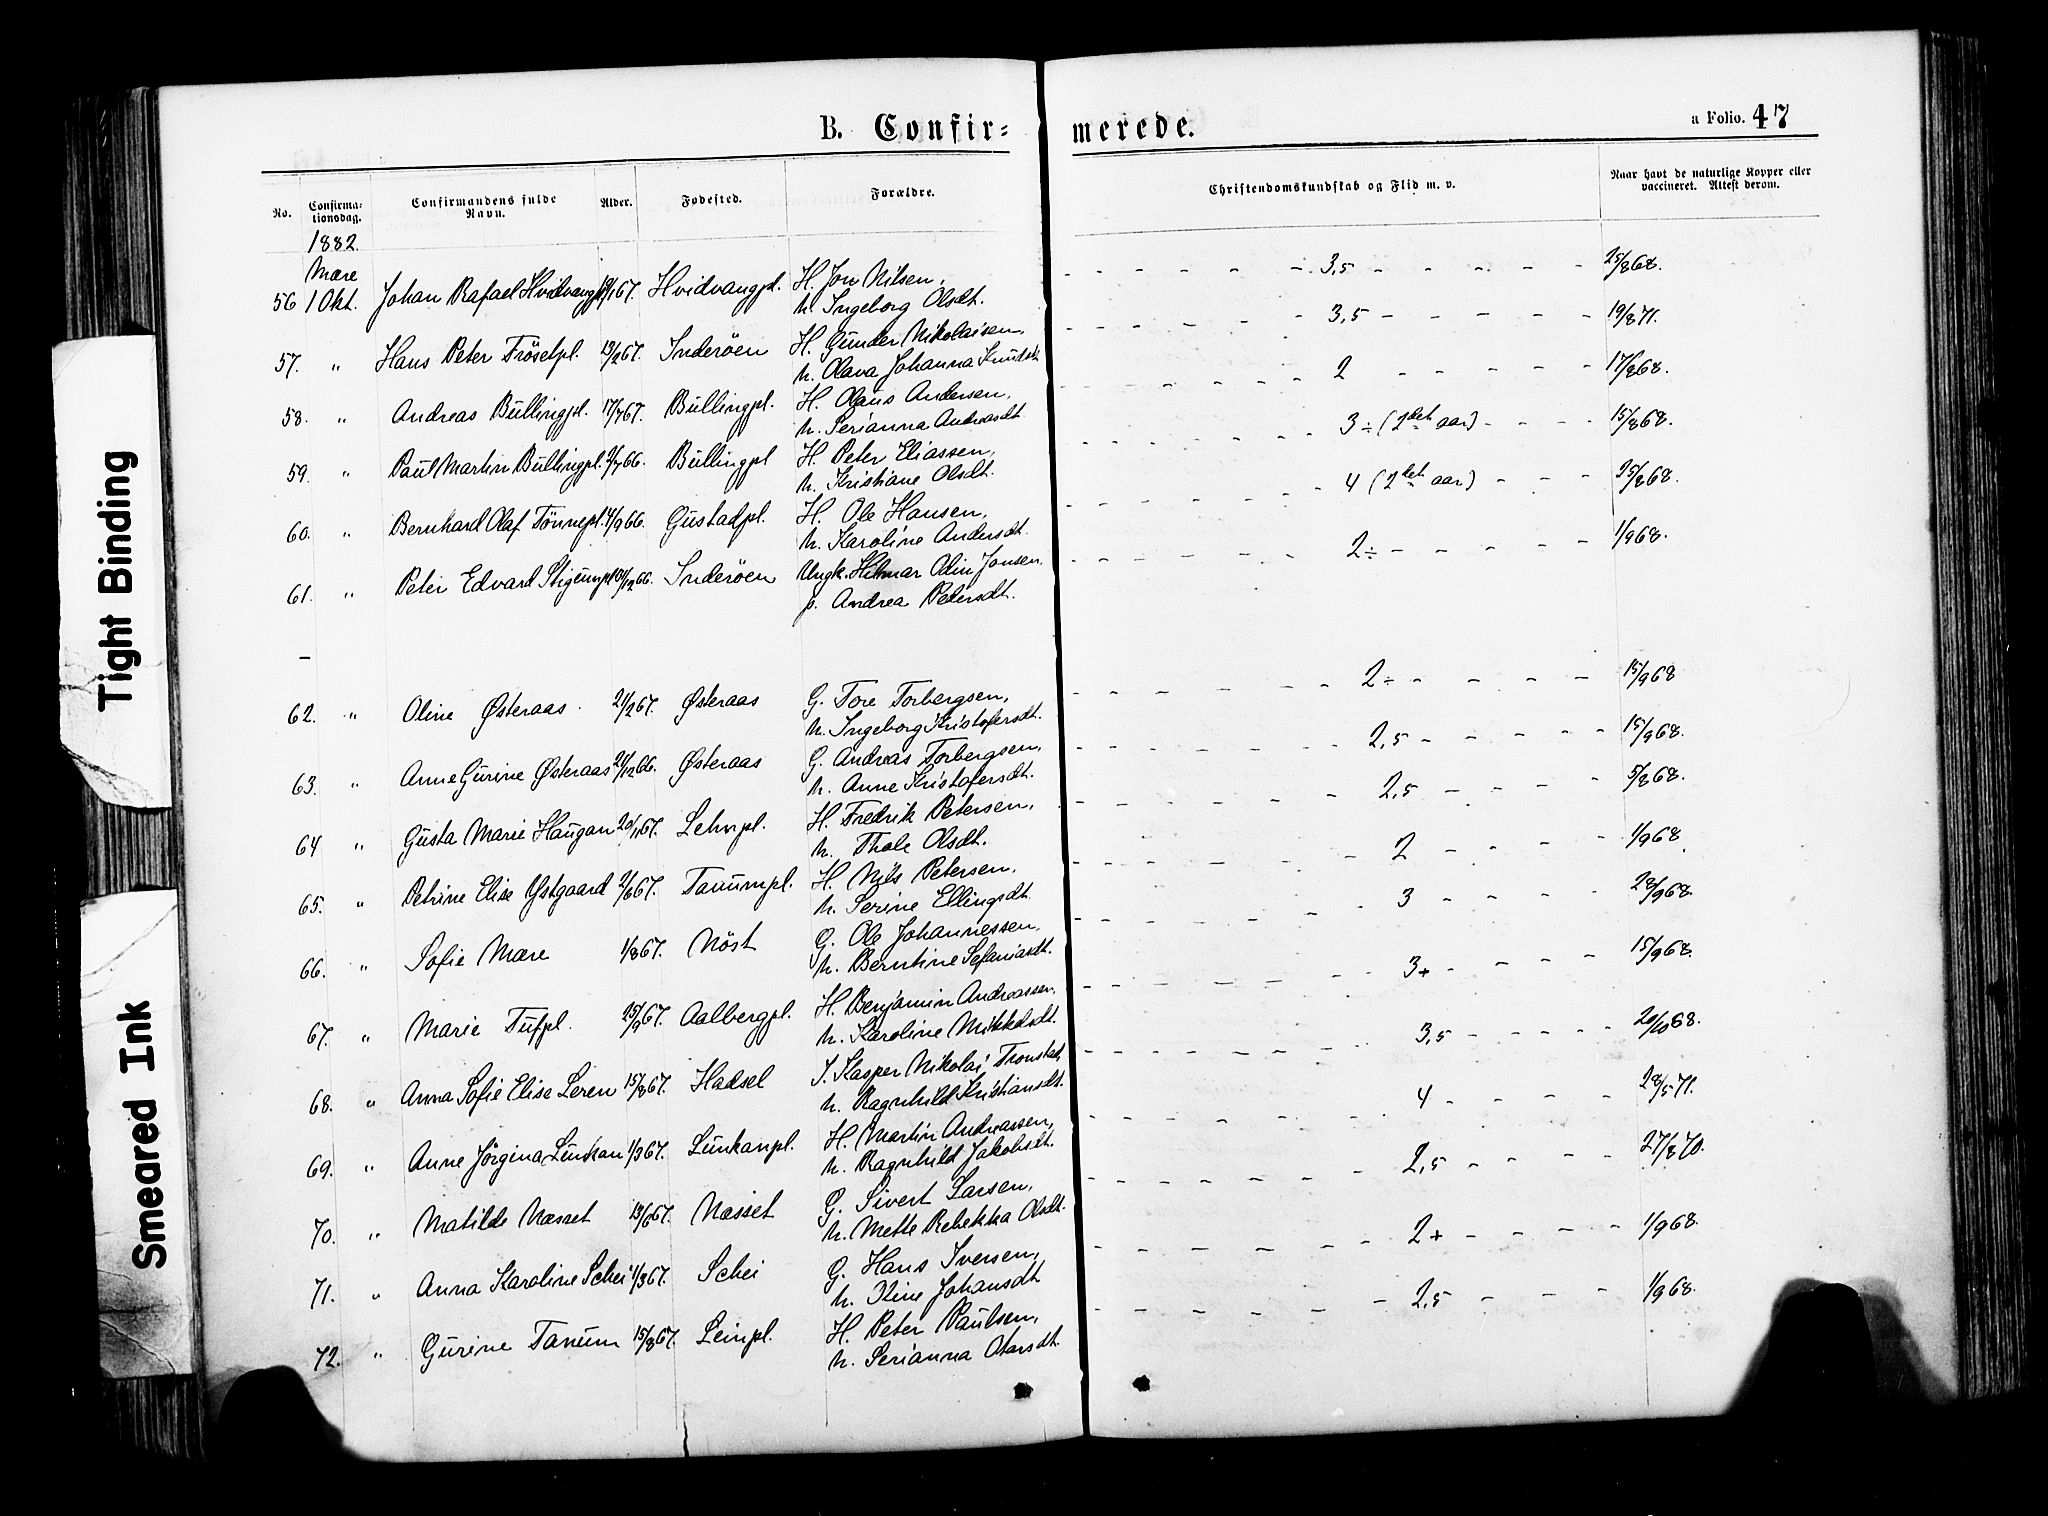 B. Confir=
merede.
a Folio. 47
No.
Confirma-
tionsdag.
Confirmandens fulde
Navn.
Alder.
Fødested.
Forældre.
Christendomskundskab og Flid m. v.
Naar havt de naturlige Kopper eller
vaccineret. Attest derom.
1882.
Mære
56 1 Okt. Johan Rafael Hvidvangpl. /1 67. Hvidvangpl. H. Jon Nilsen, - - - - - - - 3,5 - - - - - 25/8 68.
M. Ingeborg Olsdt.
57. " Hans Peter Frösetpl. 13/2 67. Inderöen H. Gunder Nikolaisen, - - - - - - - 3,5 - - - - - 19/8 71.
M. Olava Johanna Knudsdt.
58. " Andreas Bullingpl. 17/7 67. Bullingpl. H. Olaus Andersen, - - - - - - - 2 - - - - - 17/8 68.
M. Serianna Andreasdt.
59. " Paul Martin Bullingpl. 2/7 66. Bullingpl H. Peter Eliassen, - - - - - - - 3 ÷ (2det aar) - - - 15/8 68.
M. Kristiane Olsdt.
60. " Bernhard Olaf Tönnepl. 4/9 66. Gustadpl. H. Ole Hansen, - - - - - - - 4 (2det aar) - - - 25/8 68.
M. Karoline Andersdt.
61. " Peter Edvard Stigumpl /12 66. Inderöen Ungk. Hilmar Odin Jonsen - - - - - - - 2 ÷ - - - - - 1/9 68.
p. Andrea Petersdt.
-
62. " Oline Østeraas. 21/2 67. Østeraas G. Tore Torbergsen, - - - - - - - 2 ÷ - - - - 15/9 68
M. Ingeborg Kristofersdt.
63. " Anne Gurine Østeraas 24/12 66. Østeraas G. Andreas Torbergsen, - - - - - - - 2,5 - - - - - 15/9 68.
M. Anne Kristofersdt.
64 " Gusta Marie Haugan 20/1 67. Lehnpl. H. Fredrik Petersen, - - - - - - - 2,5 - - - - 5/8 68.
M. Thale Olsdt.
65. " Petrine Elise Østgaard 2/6 67. Tanumpl. H. Nils Petersen, - - - - - - - 2 - - - - 1/9 68.
M. Serine Ellingsdt.
66. " Sofie Mære 1/8 67. Nöst G. Ole Johannessen, - - - - - - - 3 - - - - 28/9 68.
M. Berntine Sefaniasdt.
67. " Marie Tufpl. 25/9 67. Aalbergpl. H. Benjamin Andreassen, - - - - - - - 3+ - - - - 15/9 68.
M. Karoline Mikkelsdt.
68. " Anna Sofie Elise Leren 15/8 67. Hadsel I. Kasper Nikolai Tronstad, - - - - - - - 3,5 - - - - - 20/10 68.
M. Ragnhild Kristiansdt.
69. " Anne Jörgina Lunkan 1/3 67. Lunkanpl. H. Martin Andreassen, - - - - - - - 4 - - - - - 28/5 71.
M. Ragnhild Jakobsdt.
70. " Matilde Næsset 13/6 67. Næsset G. Sivert Larsen, - - - - - - - 2,5 - - - - 27/8 70.
M. Mette Rebekka Olsdt.
71. " Anna Karoline Schei 1/3 67. Schei G. Hans Iversen, - - - - - - - 2+ - - - - 1/9 68.
M. Oline Johansdt
72. " Gurine Tanum 15/8 67. Leinpl. H. Peter Paulsen, - - - - - - - 2,5 - - - - 1/9 68.
M. Serianna Olarsdt.
Tight Binding
Smeared Ink